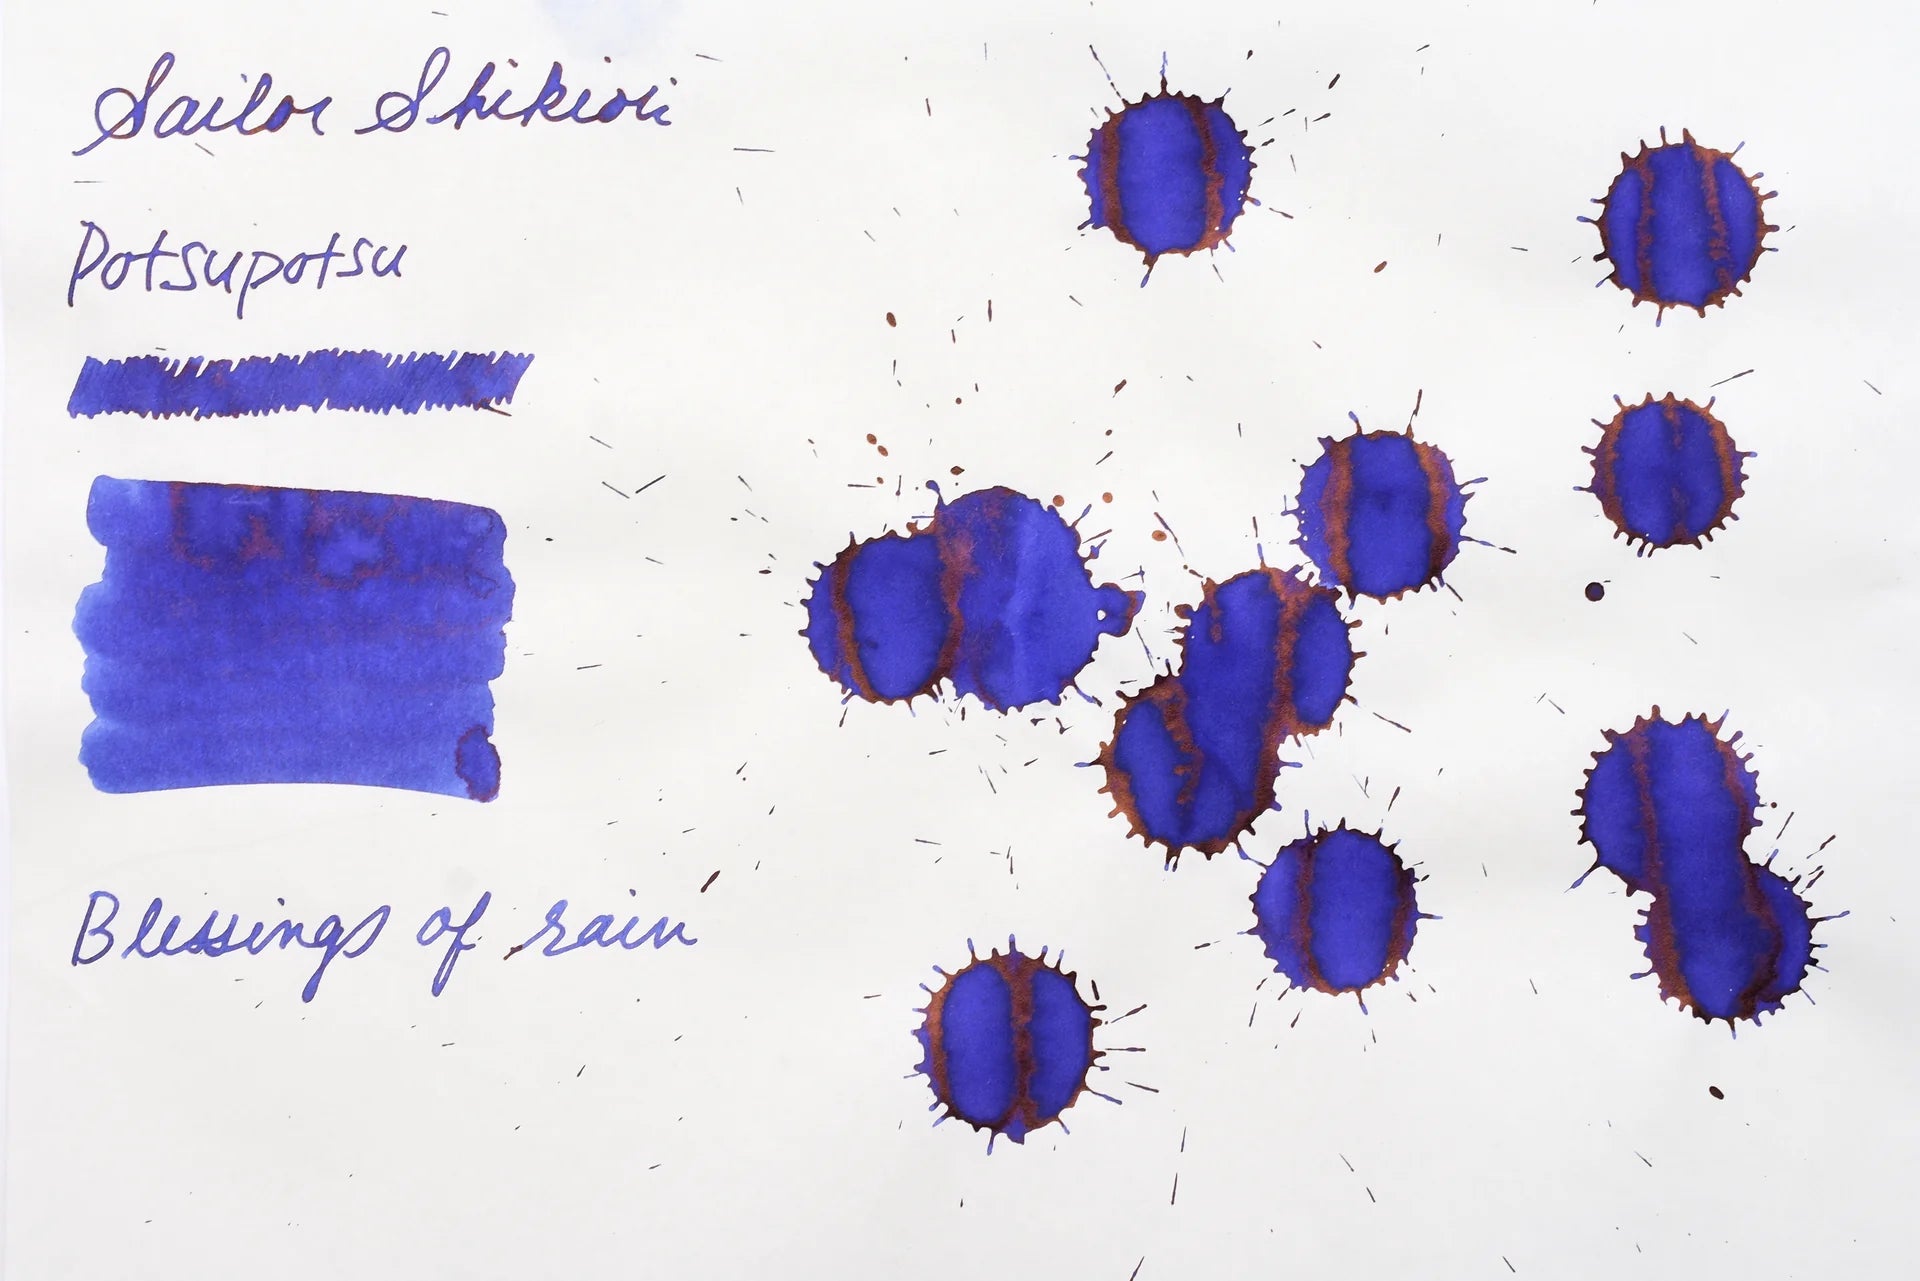 Sailor Shikiori
Potsupotsu
Blessings of rain